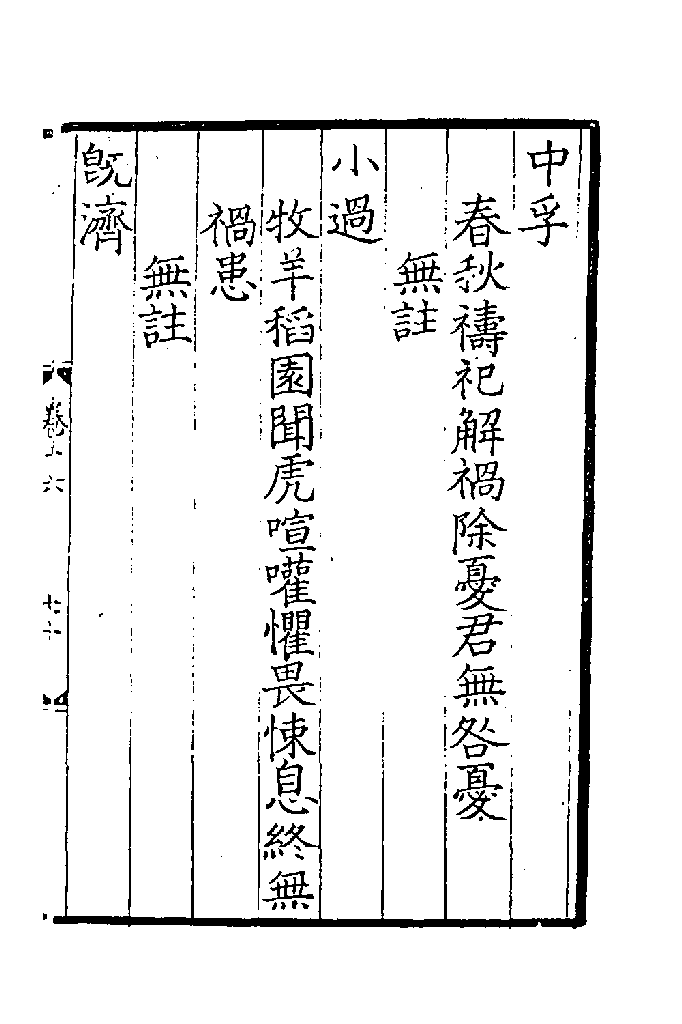 中孚
春秋禱祀解禍除憂君無咎憂
無註
小過
牧羊稻園聞虎喧嚾懼畏悚息終無
禍患
無註
旣濟
卷十六